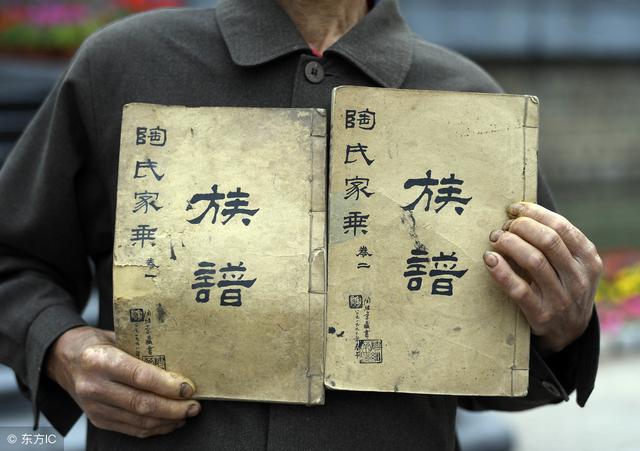 陶氏家乘 卷一
族譜
陶氏家乘 卷二
族譜
© 东方IC